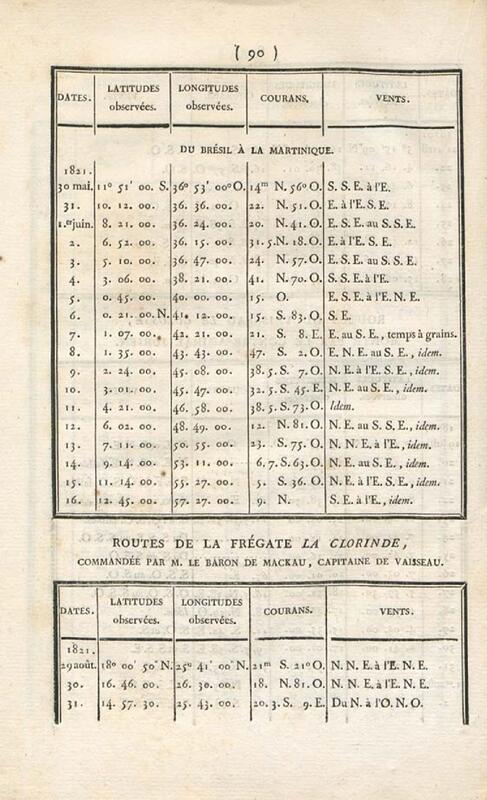 ( 90 )
DATES. LATITUDES observées. LONGITUDES observées. COURANS. VENTS.
DU BRÉSIL À LA MARTINIQUE.
1821.
30 mai. 11° 51′ 00. S. 36° 53′ 00° O. 14m N. 56° O. S. S. E. à l'E.
31. 10. 12. 00. 36. 36. 00. 22. N. 51. O. E. à l'E. S. E.
1.er juin. 8. 21. 00. 36. 24. 00. 20. N. 41. O. E. S. E. au S. S. E.
2. 6. 52. 00. 36. 15. 00. 31. 5. N. 18. O. E. à l'E. S. E.
3. 5. 10. 00. 36. 47. 00. 24. N. 57. O. E. S. E. au S. S. E.
4. 3. 06. 00. 38. 21. 00. 41. N. 70. O. S. S. E. à l'E.
5. 0. 45. 00. 40. 00. 00. 15. O. E. S. E. à l'E. N. E.
6. 0. 21. 00. N. 41. 12. 00. 15. S. 83. O. S. E.
7. 1. 07. 00. 42. 21. 00. 21. S. 8. E. E. au S. E., temps à grains.
8. 1. 35. 00. 43. 43. 00. 47. S. 2. O. E. N. E. au S. E., idem.
9. 2. 24. 00. 45. 08. 00. 38. 5. S. 7. O. N. E. à l'E. S. E., idem.
10. 3. 01. 00. 45. 47. 00. 32. 5. S. 45. E. N. E. au S. E., idem.
11. 4. 21. 00. 46. 58. 00. 38. 5. S. 73. O. Idem.
12. 6. 02. 00. 48. 49. 00. 12. N. 81. O. N. E. au S. S. E., idem.
13. 7. 11. 00. 50. 55. 00. 23. S. 75. O. N. N. E. à l'E., idem.
14. 9. 14. 00. 53. 11. 00. 6. 7. S. 63. O. N. E. au S. E., idem.
15. 11. 14. 00. 55. 27. 00. 5. S. 36. O. N. E. à l'E. S. E., idem.
16. 12. 45. 00. 57. 27. 00. 9. N. S. E. à l'E., idem.
ROUTES DE LA FRÉGATE LA CLORINDE,
COMMANDÉE PAR M. LE BARON DE MACKAU, CAPITAINE DE VAISSEAU.
DATES. LATITUDES observées. LONGITUDES observées. COURANS. VENTS.
1821.
29 août. 18° 00′ 50″ N. 25° 41′ 00″ N. 21m S. 21° O. N. N. E. à l'E. N. E.
30. 16. 46. 00. 26. 30. 00. 18. N. 81. O. N. N. E. à l'E. N. E.
31. 14. 57. 30. 25. 43. 00. 20. 3. S. 9. E. Du N. à l'O. N. O.